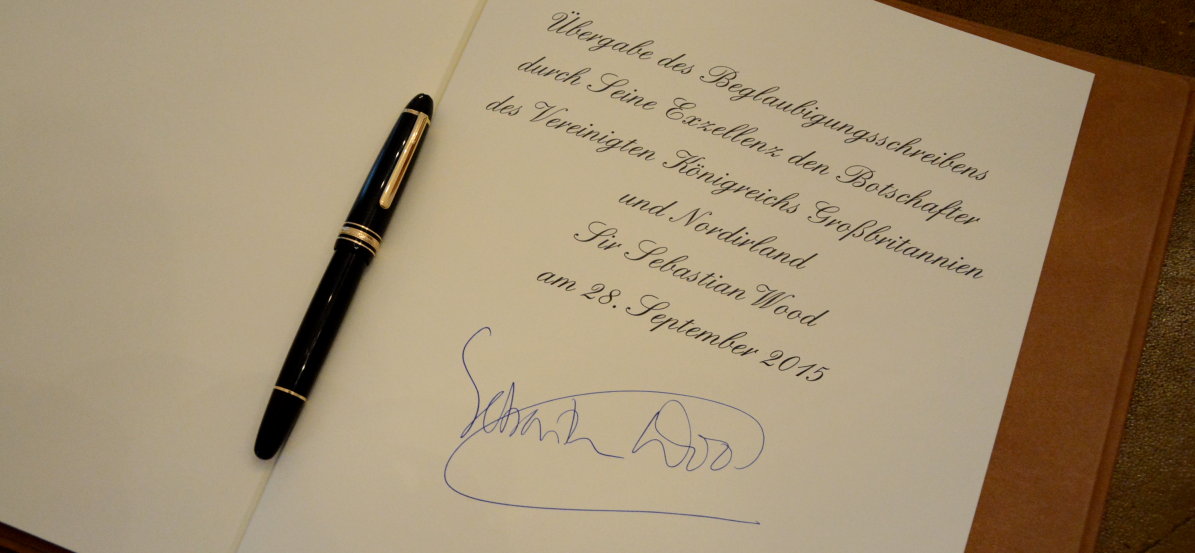 Übergabe des Beglaubigungsschreibens
durch Seine Exzellenz den Botschafter
des Vereinigten Königreichs Großbritannien
und Nordirland
Sir Sebastian Wood
am 28. September 2015
Sebastian Wood